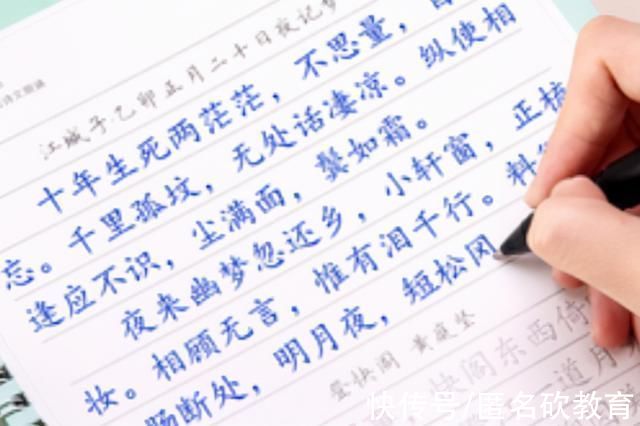 江城子·乙卯正月二十日夜记梦
十年生死两茫茫，不思量，
忘。千里孤坟，无处话凄凉。纵使相
逢应不识，尘满面，鬓如霜。
夜来幽梦忽还乡，小轩窗，正梳
妆。相顾无言，惟有泪千行。料
肠断处，明月夜，短松冈
登快阁 黄庭坚
快阁东西倚
道月
快传号/匿名砍教育